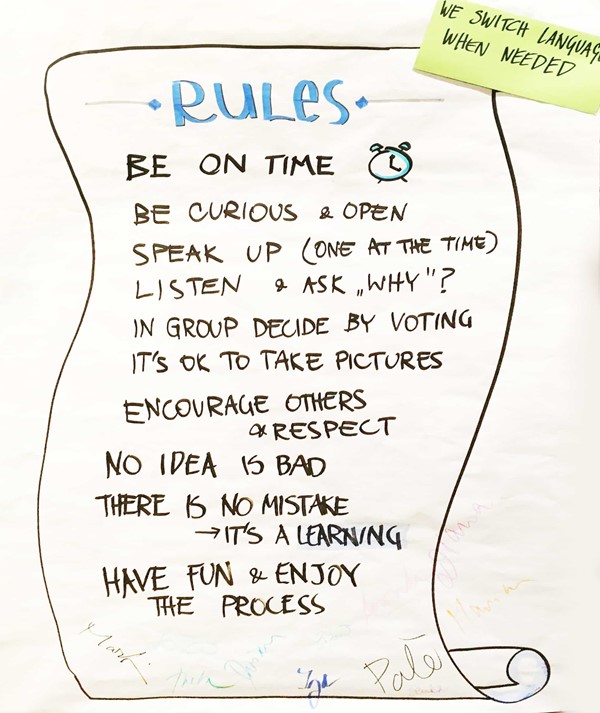 WE SWITCH
WHEN NEEDED
RULES
BE ON TIME
BE CURIOUS & OPEN
SPEAK UP (ONE AT THE TIME)
LISTEN & ASK „WHY"?
IN GROUP DECIDE BY VOTING
IT'S OK TO TAKE PICTURES
ENCOURAGE OTHERS
& RESPECT
NO IDEA IS BAD
THERE IS NO MISTAKE
→ IT'S A LEARNING
HAVE FUN & ENJOY
THE PROCESS